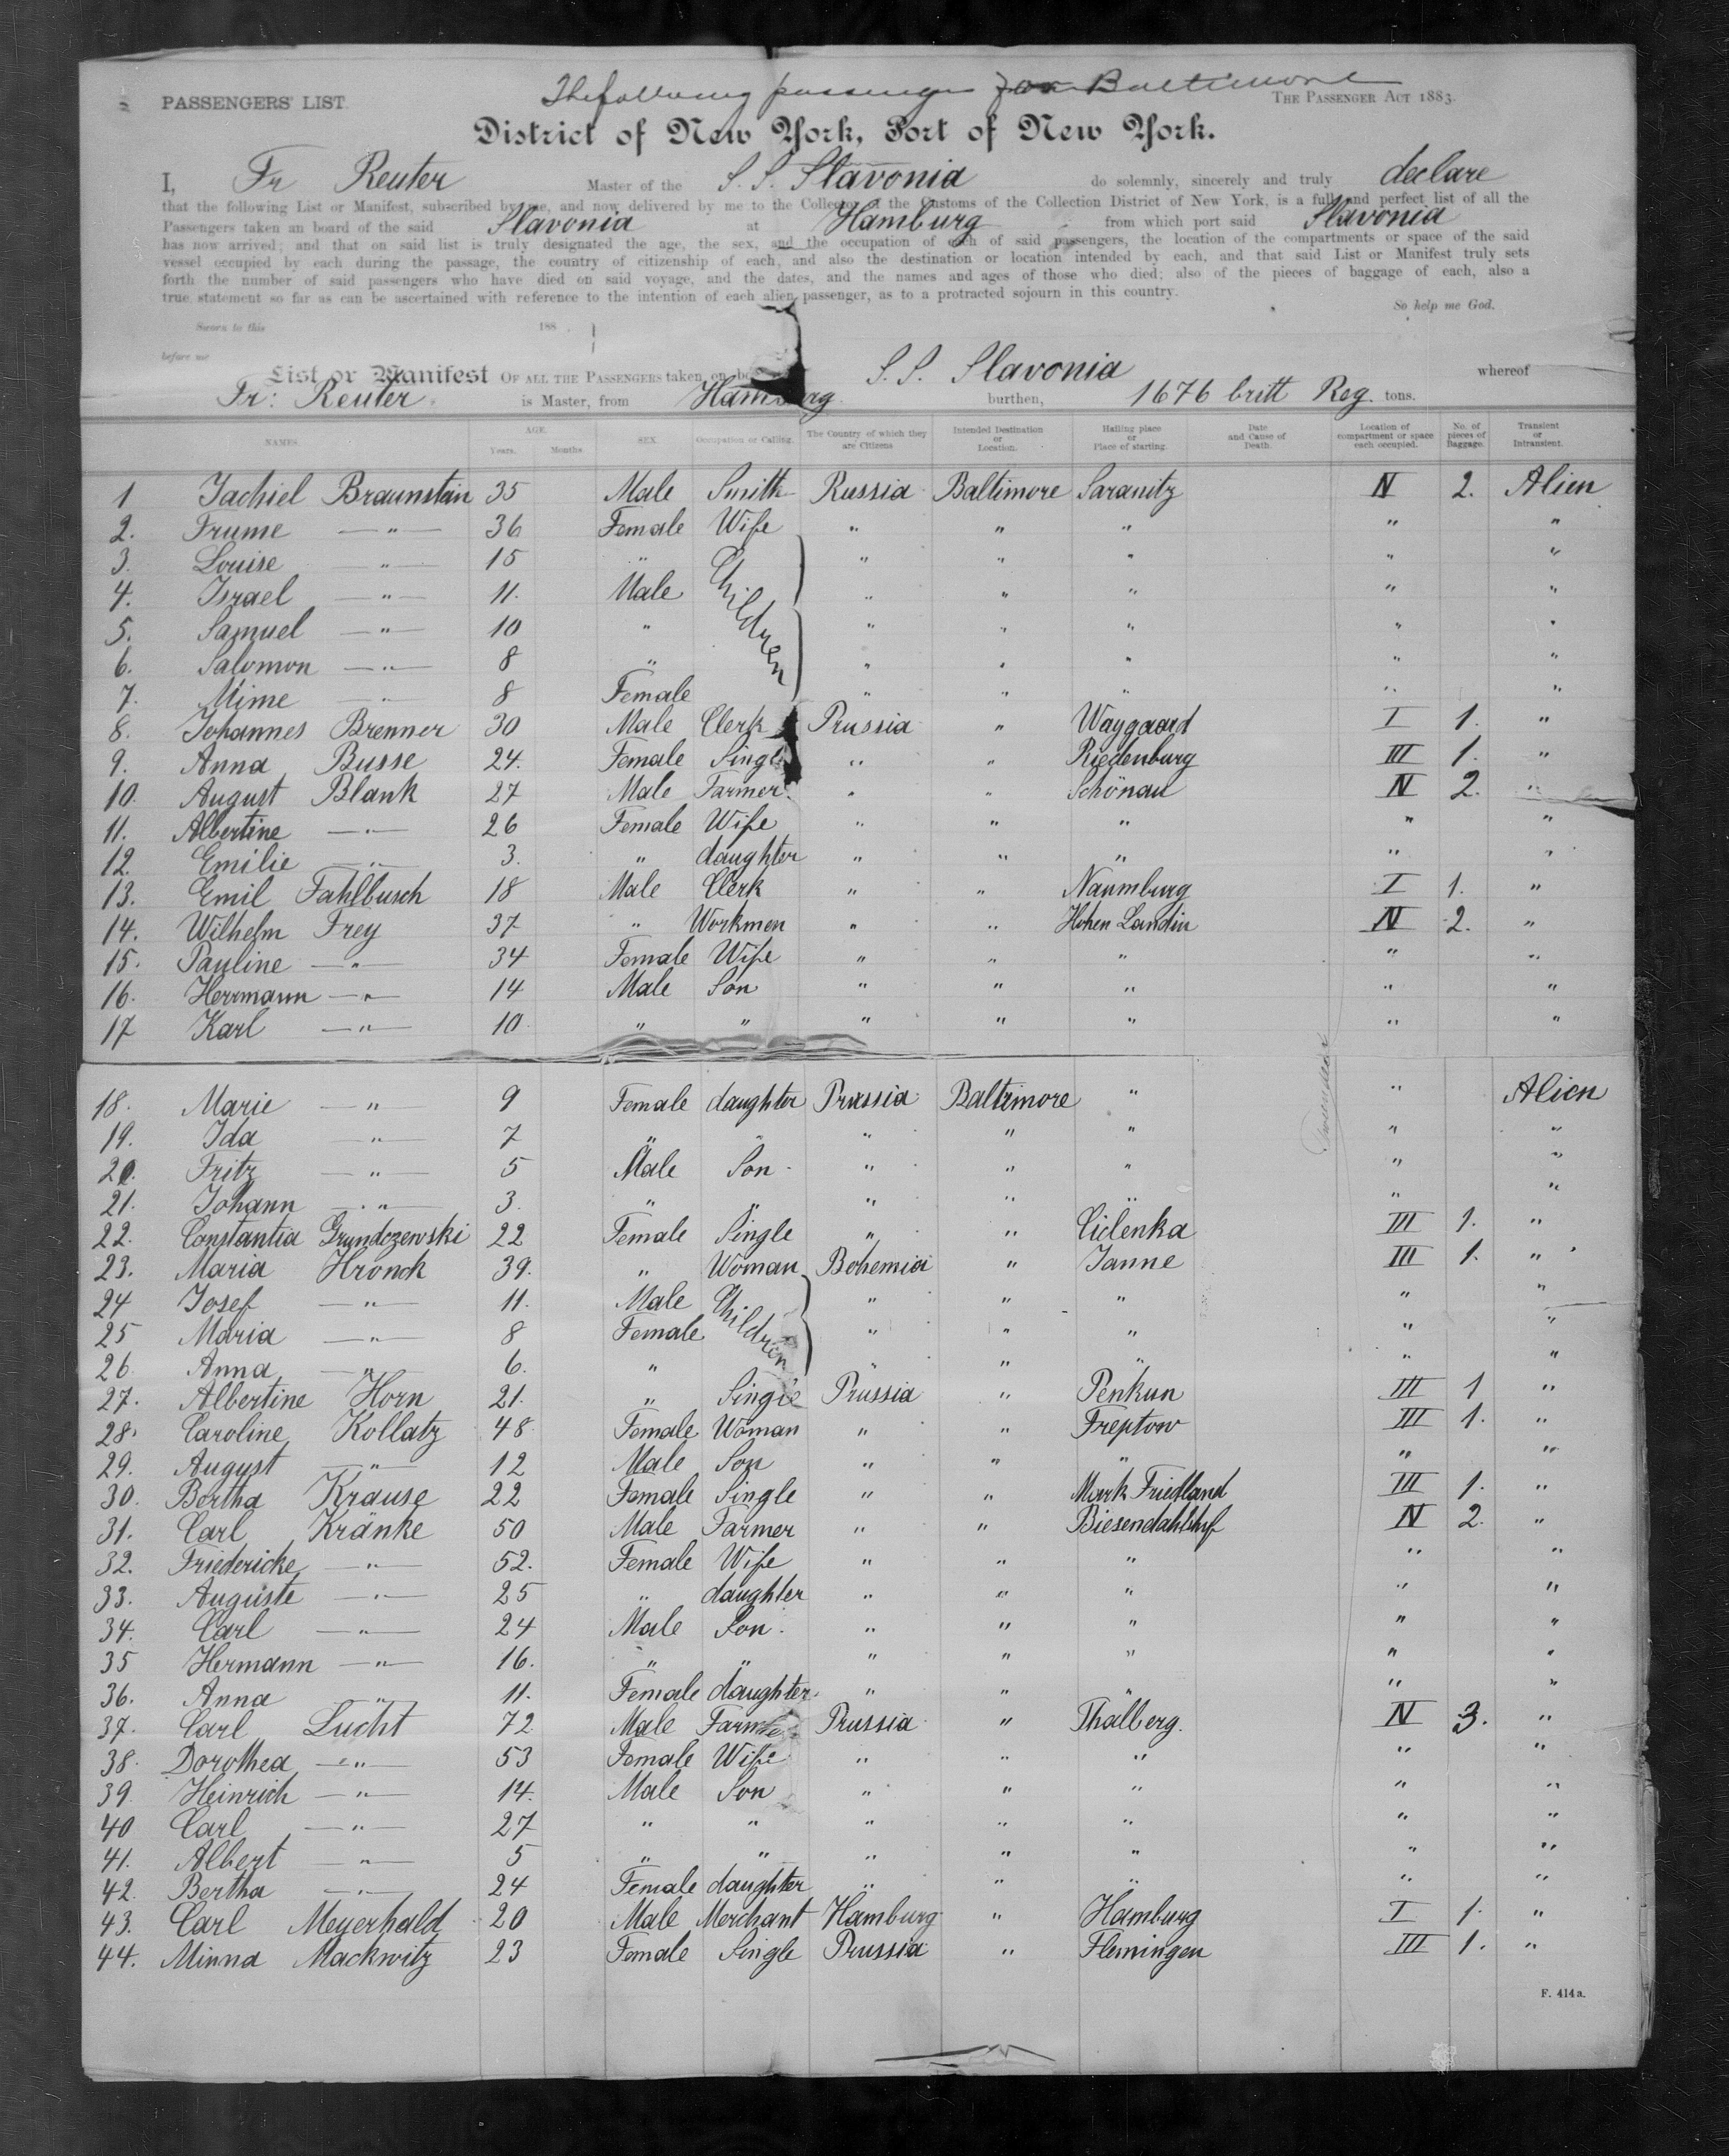 The following passengers for Baltimore
PASSENGERS' LIST. THE PASSENGER ACT 1883.
District of New York, Port of New York.
I, Fr Reuter Master of the S. S. Slavonia do solemnly, sincerely and truly declare
that the following List or Manifest, subscribed by me, and now delivered by me to the Collector of the Customs of the Collection District of New York, is a full and perfect list of all the
Passengers taken on board of the said Slavonia at Hamburg from which port said Slavonia
has now arrived; and that on said list is truly designated the age, the sex, and the occupation of each of said passengers, the location of the compartments or space of the said
vessel occupied by each during the passage, the country of citizenship of each, and also the destination or location intended by each, and that said List or Manifest truly sets
forth the number of said passengers who have died on said voyage, and the dates, and the names and ages of those who died; also of the pieces of baggage of each, also a
true statement so far as can be ascertained with reference to the intention of each alien passenger, as to a protracted sojourn in this country.
So help me God.
Sworn to this 188
before me
List or Manifest OF ALL THE PASSENGERS taken on bo S. S. Slavonia whereof
Fr: Reuter is Master, from Hamburg burthen, 1676 britt Reg. tons.
NAMES. AGE. Years. Months. SEX. Occupation or Calling. The Country of which they are Citizens Intended Destination or Location. Hailing place or Place of starting. Date and Cause of Death. Location of compartment or space each occupied. No. of pieces of Baggage. Transient or Intransient.
1 Jachiel Braunstain 35 Male Smith Russia Baltimore Saranitz IV 2. Alien
2. Frume — " — 36 Female Wife " " " " "
3. Louise — " — 15 " Children " " " " "
4. Israel — " — 11. Male " " " " "
5. Samuel — " — 10 " " " " " "
6. Salomon — " — 8 " " " " " "
7. Mime " 8 Female " " " " "
8. Johannes Brenner 30 Male Clerk Prussia " Waygaard I 1. "
9. Anna Busse 24. Female Single " " Riedenburg III 1. "
10. August Blank 27 Male Farmer " " Schönau IV 2. "
11. Albertine — " — 26 Female Wife " " " " "
12. Emilie — " — 3. " daughter " " " " "
13. Emil Fahlbusch 18 Male Clerk " " Naumburg I 1. "
14. Wilhelm Frey 37 " Workmen " " Hohen Landin IV 2. "
15. Pauline — " — 34 Female Wife " " " " "
16. Herrmann — " — 14 Male Son " " " " "
17 Karl — " — 10 " " " " " " "
18. Marie — " — 9 Female daughter Prussia Baltimore " " Alien
19. Ida — " — 7 " " " " " " "
20. Fritz — " — 5 Male Son " " " " "
21. Johann — " — 3. " " " " " " "
22. Constantia Grundczewski 22 Female Single " " Cielenka III 1. "
23. Maria Hronek 39. " Woman Bohemia " Janne III 1. "
24 Josef — " — 11. Male Children " " " " "
25 Maria — " — 8 Female " " " " "
26 Anna — " — 6. " " " " " "
27. Albertine Horn 21. " Single Prussia " Penkun III 1 "
28. Caroline Kollatz 48 Female Woman " " Treptow III 1. "
29. August — " — 12 Male Son " " " " "
30. Bertha Krause 22 Female Single " " Mark Friedland III 1. "
31. Carl Kränke 50 Male Farmer " " Biesendahlshf IV 2. "
32. Friedericke — " — 52. Female Wife " " " " "
33. Auguste — " — 25 " daughter " " " " "
34. Carl — " — 24 Male Son " " " " "
35 Hermann — " — 16. " " " " " " "
36. Anna — " — 11. Female daughter " " " " "
37. Carl Lucht 72 Male Farmer Prussia " Thalberg. IV 3. "
38. Dorothea — " — 53 Female Wife " " " " "
39. Heinrich — " — 14. Male Son " " " " "
40 Carl — " — 27 " " " " " " "
41. Albert — " — 5 " " " " " " "
42. Bertha — " — 24 Female daughter " " " " "
43. Carl Meyerhald 20 Male Merchant Hamburg " Hamburg I 1. "
44. Minna Mackwitz 23 Female Single Prussia " Flemingen III 1. "
F. 414a.